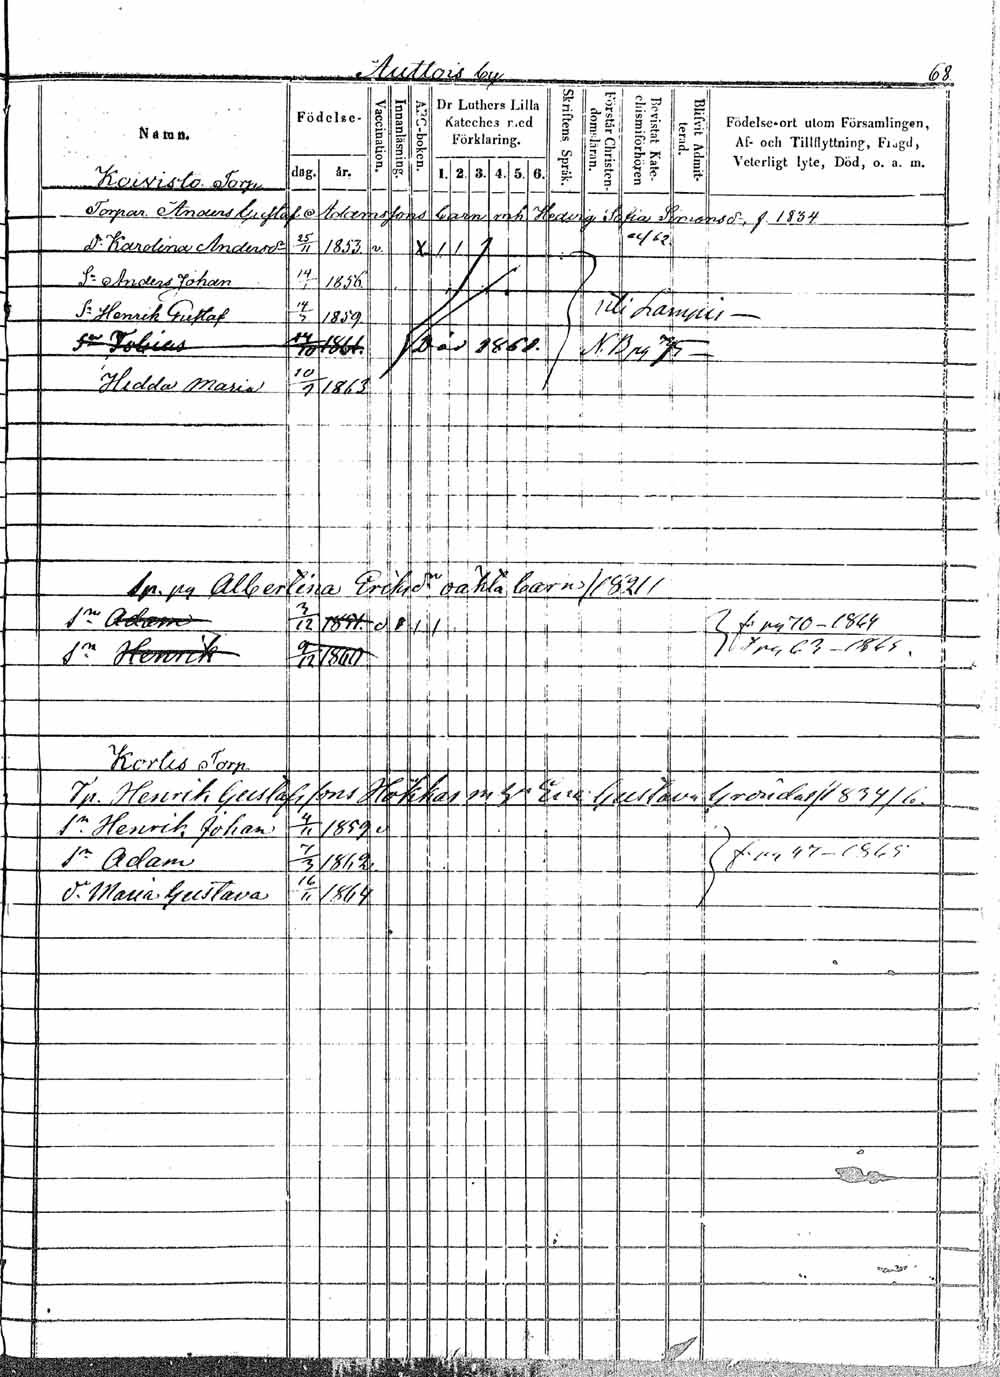 Auttois by
68
Namn.
Födelse-
dag. år.
Vaccination.
Innanläsning.
ABC-boken.
Dr Luthers Lilla
Kateches med
Förklaring.
1. 2. 3. 4. 5. 6.
Skriftens Språk.
Förstår Christen-
domsläran.
Bevistat Kate-
chismiförhören
Blifvit Admit-
terad.
Födelse-ort utom Församlingen,
Af- och Tillflyttning, Frejd,
Veterligt lyte, Död, o. a. m.
Koivisto Torp
Torpar. Anders Gustaf Adamssons barn mh Hedvig Sofia Simonsdr, f. 1834
Dr Karolina Andersdr 25/11 1853 v. X 1 1
Sn Anders Johan 14 1856
Sn Henrik Gustaf 14/3 1859 uti Lampis —
Sn Tobias 10 1861. Död 1868. N.B pg 75 —
Hedda Maria 10/7 1863
Albertina Eriksdr oäkta barn /1821/
Sn Adam 3/12 1851. v 1 1 1 fr pg 70 – 1864
Sn Henrik 9/12 1860 pg 63 – 1865.
Kortes Torp
Tp. Henrik Gustafssons Hökkas m h Eva Gustava Gröndahl 1834/6.
Sn Henrik Johan 4/11 1859 v
Sn Adam 7/3 1862. fr pg 47 – 1865
Dr Maria Gustava 16/11 1864